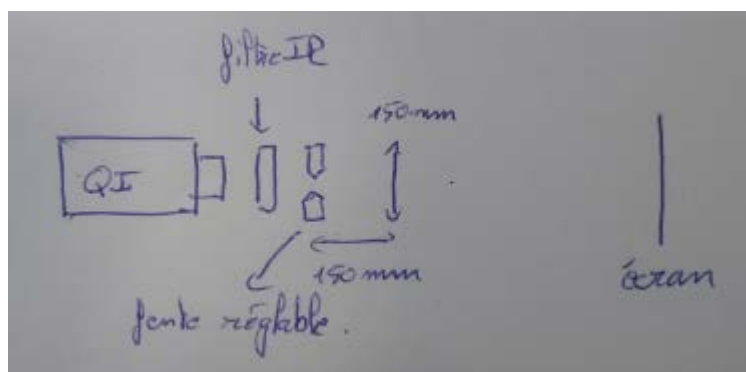 filtre IR
150mm
QI
150mm
écran
fente réglable.